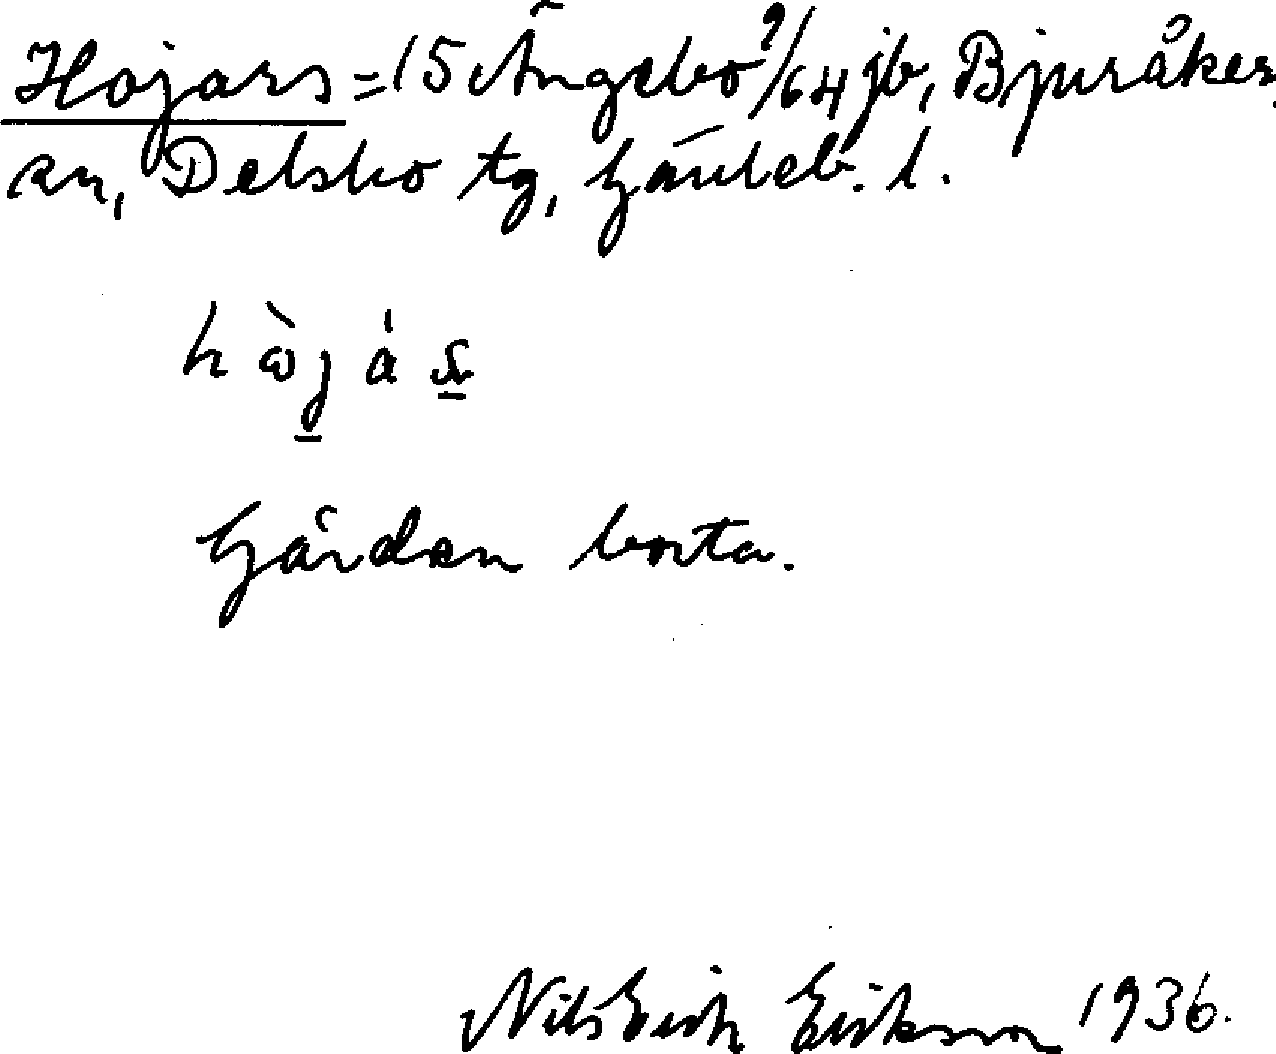 Hojars = 15 Ängebo 9/64 jb, Bjuråkers
sn, Delsbo tg, Gävleb. l.
hòjás
Gården borta.
Nils Erik Erikson 1936.